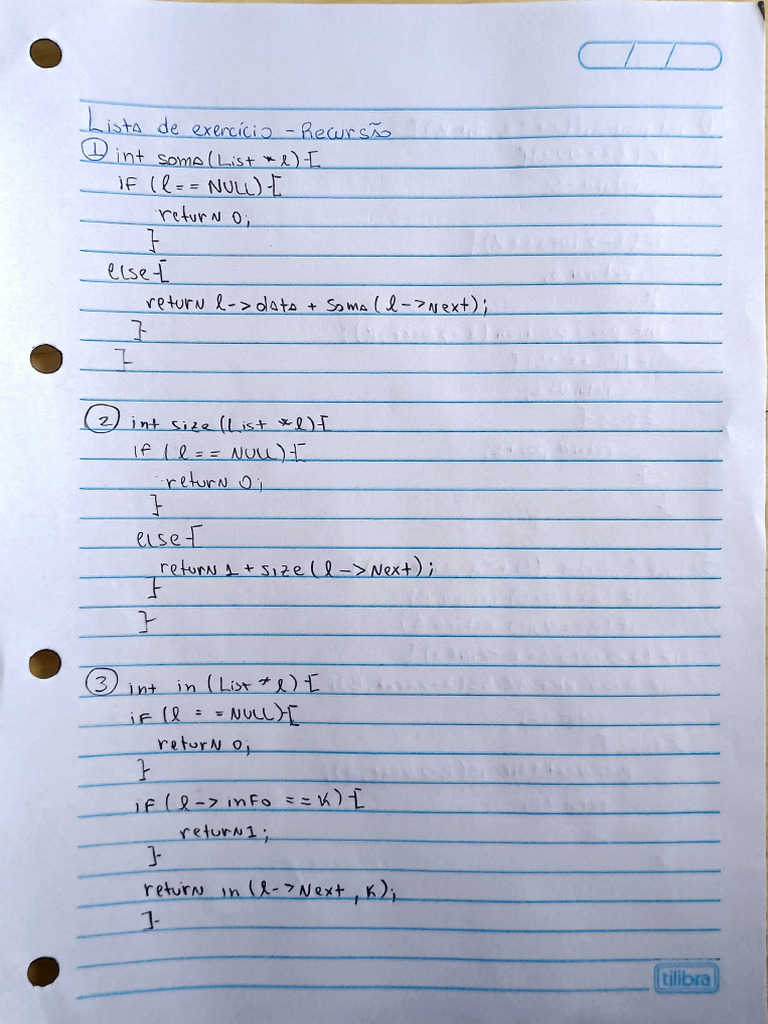 / /
Lista de exercício - Recursão
① int soma(List *l){
if (l == NULL){
return 0;
}
else{
return l->data + soma(l->Next);
}
}
② int size(List *l){
if (l == NULL){
return 0;
}
else{
return 1 + size(l->Next);
}
}
③ int in (List *l){
if (l == NULL){
return 0;
}
if (l-> info == K){
return 1;
}
return in (l->Next, K);
}
tilibra